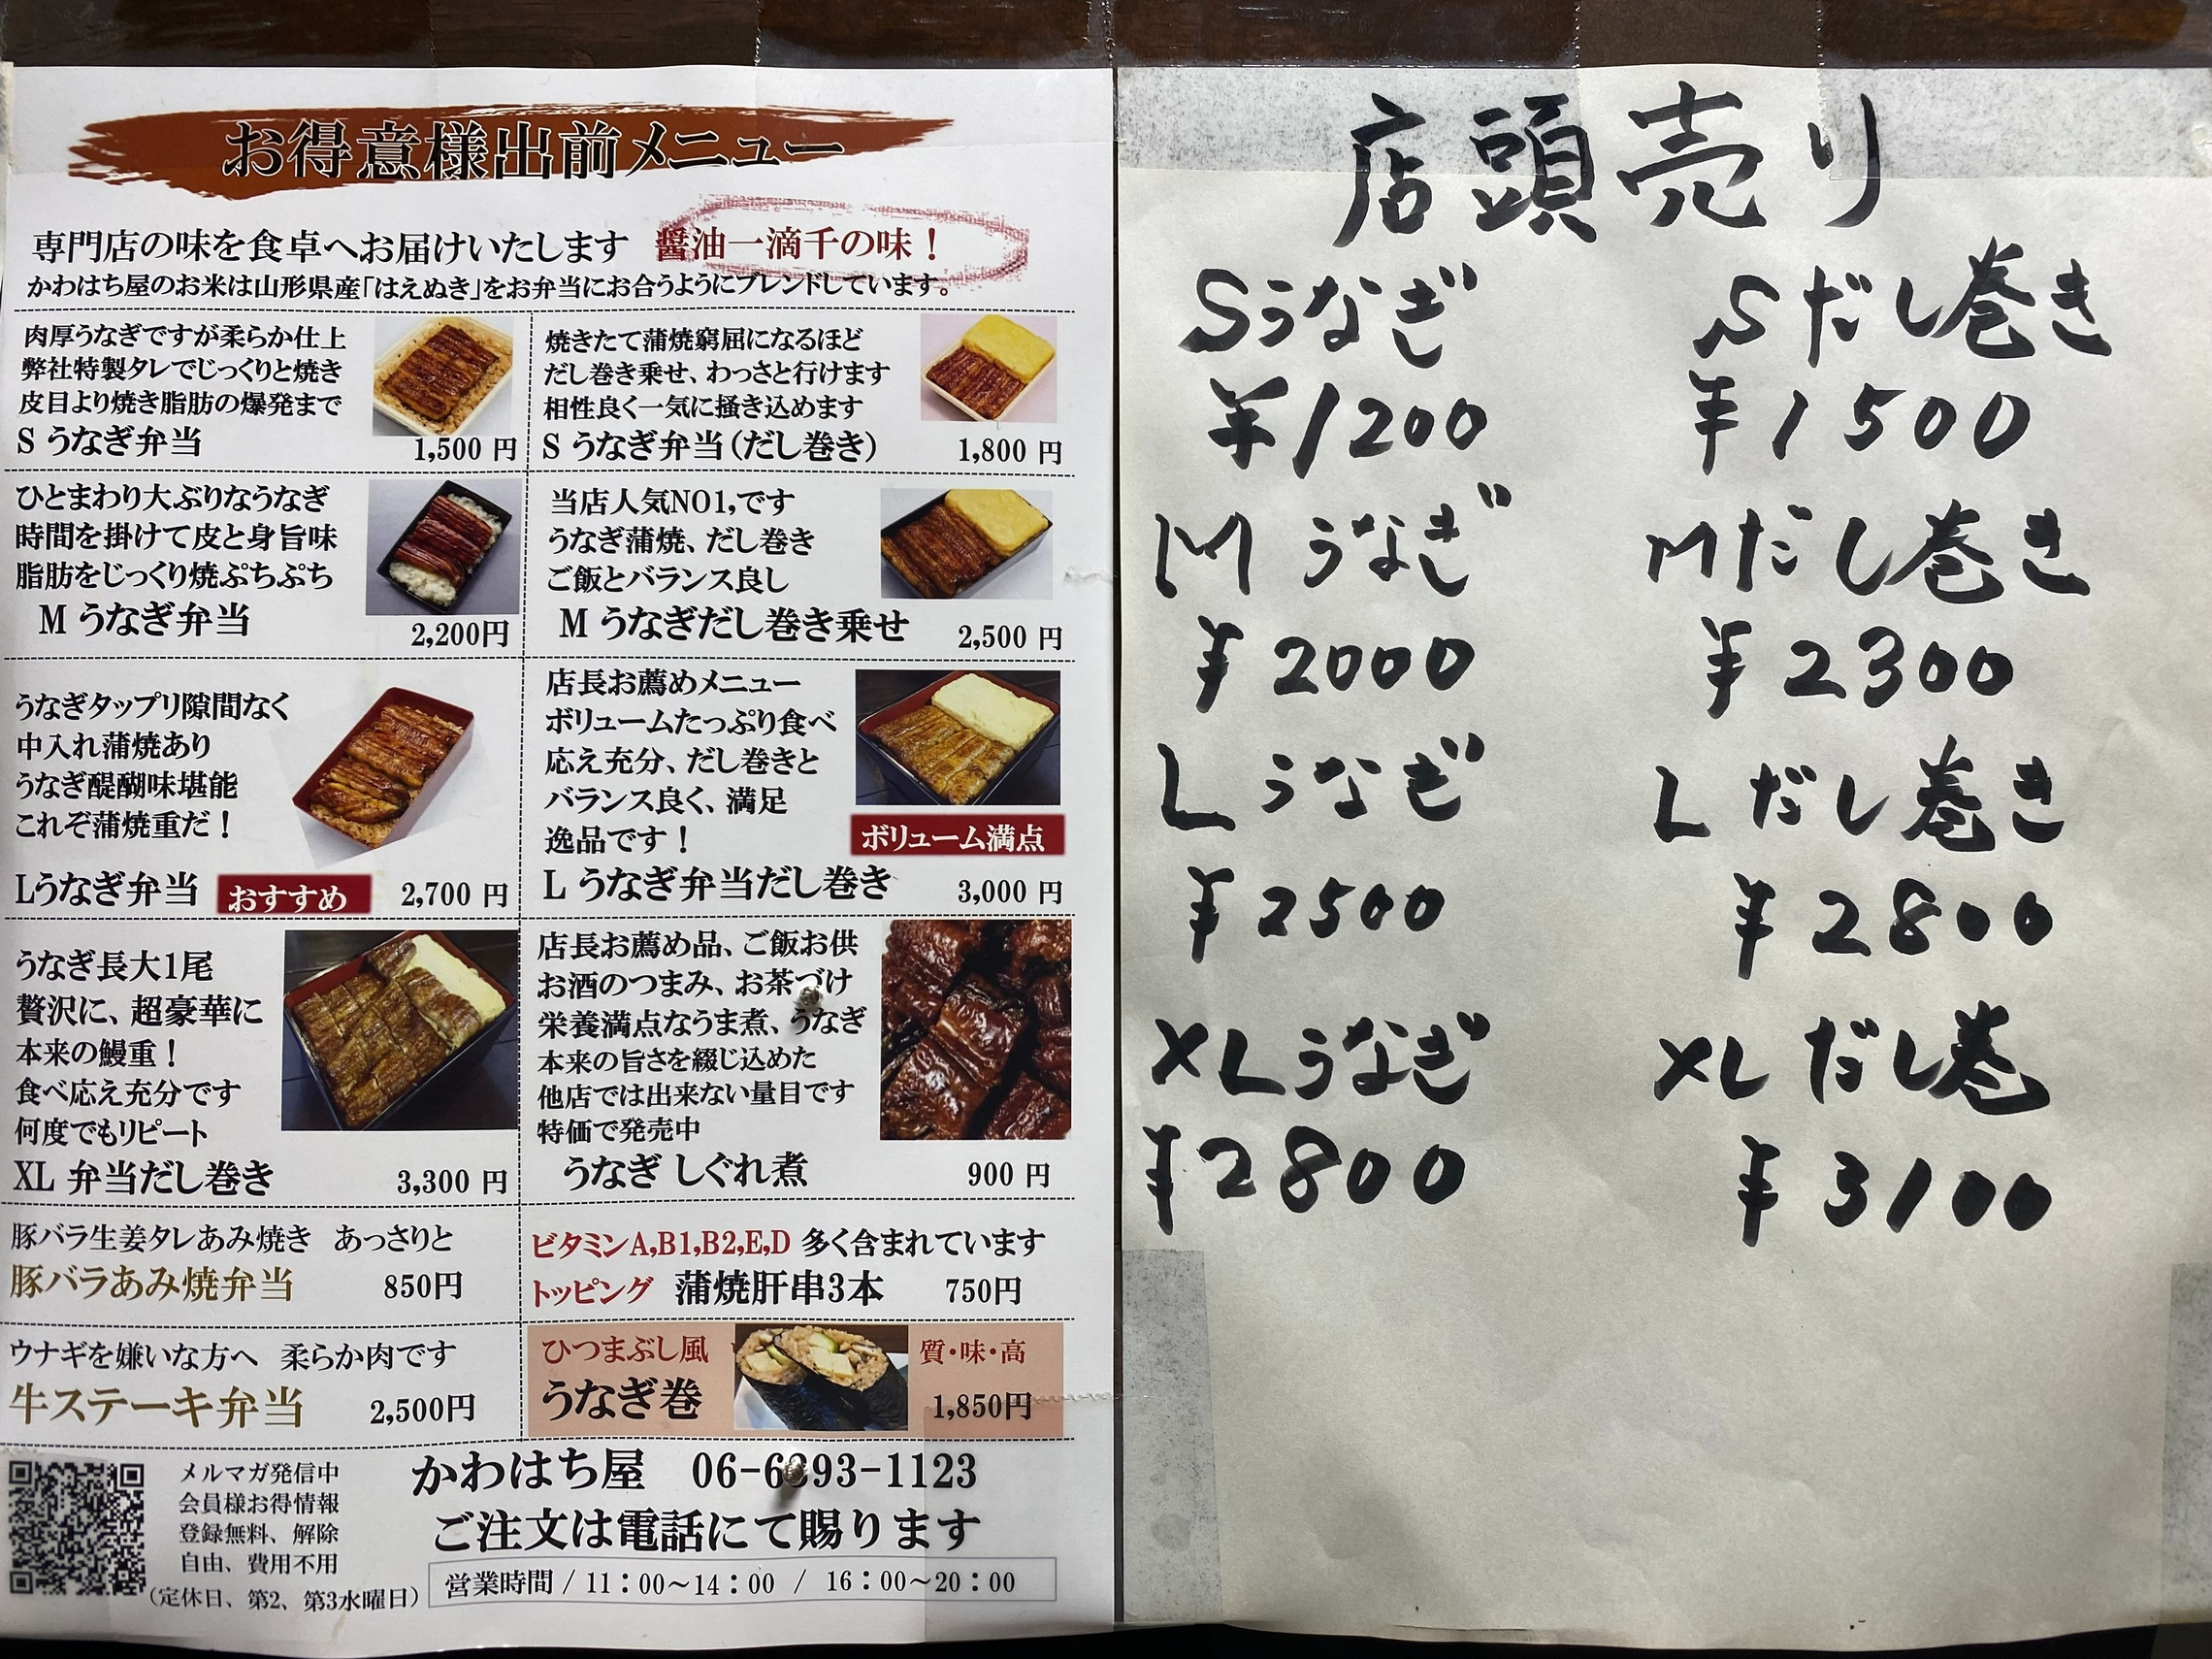 お得意様出前メニュー
専門店の味を食卓へお届けいたします 醤油一滴千の味！
かわはち屋のお米は山形県産「はえぬき」をお弁当にお合うようにブレンドしています。
肉厚うなぎですが柔らか仕上
弊社特製タレでじっくりと焼き
皮目より焼き脂肪の爆発まで
S うなぎ弁当 1,500 円
焼きたて蒲焼窮屈になるほど
だし巻き乗せ、わっさと行けます
相性良く一気に掻き込めます
S うなぎ弁当（だし巻き） 1,800 円
ひとまわり大ぶりなうなぎ
時間を掛けて皮と身旨味
脂肪をじっくり焼ぷちぷち
M うなぎ弁当 2,200円
当店人気NO1,です
うなぎ蒲焼、だし巻き
ご飯とバランス良し
M うなぎだし巻き乗せ 2,500 円
うなぎタップリ隙間なく
中入れ蒲焼あり
うなぎ醍醐味堪能
これぞ蒲焼重だ！
Lうなぎ弁当 おすすめ 2,700 円
店長お薦めメニュー
ボリュームたっぷり食べ
応え充分、だし巻きと
バランス良く、満足
逸品です！
ボリューム満点
L うなぎ弁当だし巻き 3,000 円
うなぎ長大1尾
贅沢に、超豪華に
本来の鰻重！
食べ応え充分です
何度でもリピート
XL 弁当だし巻き 3,300 円
店長お薦め品、ご飯お供
お酒のつまみ、お茶づけ
栄養満点なうま煮、うなぎ
本来の旨さを綴じ込めた
他店では出来ない量目です
特価で発売中
うなぎ しぐれ煮 900 円
豚バラ生姜タレあみ焼き あっさりと
豚バラあみ焼弁当 850円
ビタミンA,B1,B2,E,D 多く含まれています
トッピング 蒲焼肝串3本 750円
ウナギを嫌いな方へ 柔らか肉です
牛ステーキ弁当 2,500円
ひつまぶし風 質・味・高
うなぎ巻 1,850円
メルマガ発信中
会員様お得情報
登録無料、解除
自由、費用不用
（定休日、第2、第3水曜日）
かわはち屋 06-6393-1123
ご注文は電話にて賜ります
営業時間 / 11：00～14：00 / 16：00～20：00
店頭売り
Sうなぎ Sだし巻き
¥1200 ¥1500
Mうなぎ Mだし巻き
¥2000 ¥2300
Lうなぎ Lだし巻き
¥2500 ¥2800
XLうなぎ XLだし巻
¥2800 ¥3100